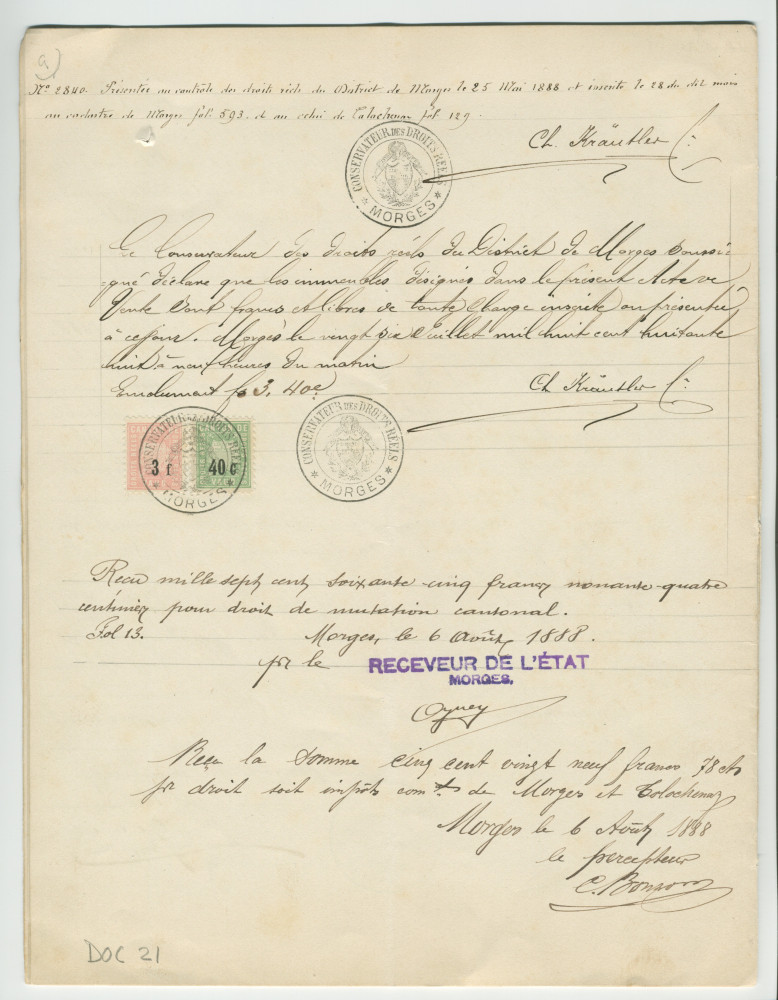 a)
No 2840. Présentée au contrôle des droits réels du District de Morges le 25 Mai 1888 et inscrite le 28 du dit mois
au cadastre de Morges fol. 593. et au celui de Tolochenaz fol 129.
Ch. Kräutler Cr.
CONSERVATEUR DES DROITS RÉELS
* MORGES *
Le Conservateur des droits réels du District de Morges soussi=
=gné déclare que les immeubles désignés dans le présent Acte de
Vente sont francs et libres de toute charge inscrite ou présentée
à ce jour. Morges le vingt six Juillet mil huit cent huitante
huit à neuf heures du matin
Emolument fr 3. 40c
Ch Kräutler Cr.
CONSERVATEUR DES DROITS RÉELS
* MORGES *
3 f 40 c
CONSERVATEUR DES DROITS RÉELS
* MORGES *
Reçu mille sept cent soixante-cinq francs nonante-quatre
centimes pour droit de mutation cantonal.
Fol 13. Morges, le 6 Août 1888.
pr le RECEVEUR DE L'ÉTAT
MORGES.
Reçu la somme cinq cent vingt neuf francs 78 cts
pr droit soit impôts com. de Morges et Tolochenaz
Morges le 6 Août 1888
le percepteur
DOC 21